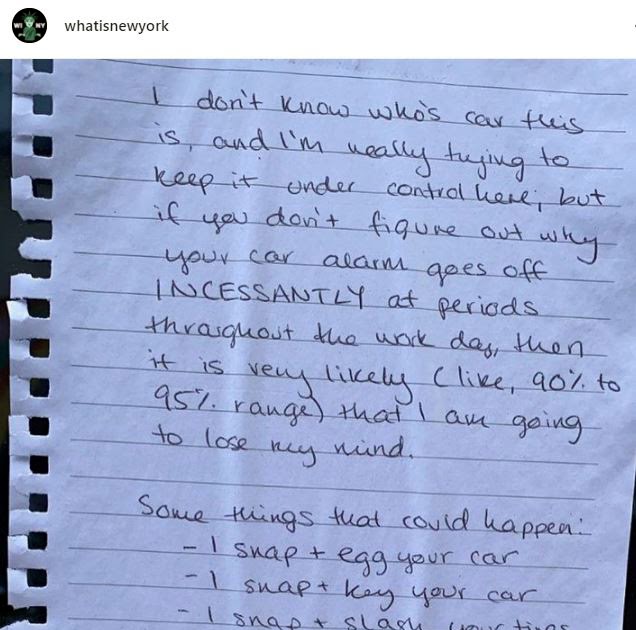 whatisnewyork
WI NY
I don't know who's car this
is, and I'm really trying to
keep it under control here; but
if you don't figure out why
your car alarm goes off
INCESSANTLY at periods
throughout the work day, then
it is very likely (like, 90% to
95% range) that I am going
to lose my mind.
Some things that could happen:
- I snap + egg your car
- I snap + key your car
- I snap + slash your tires